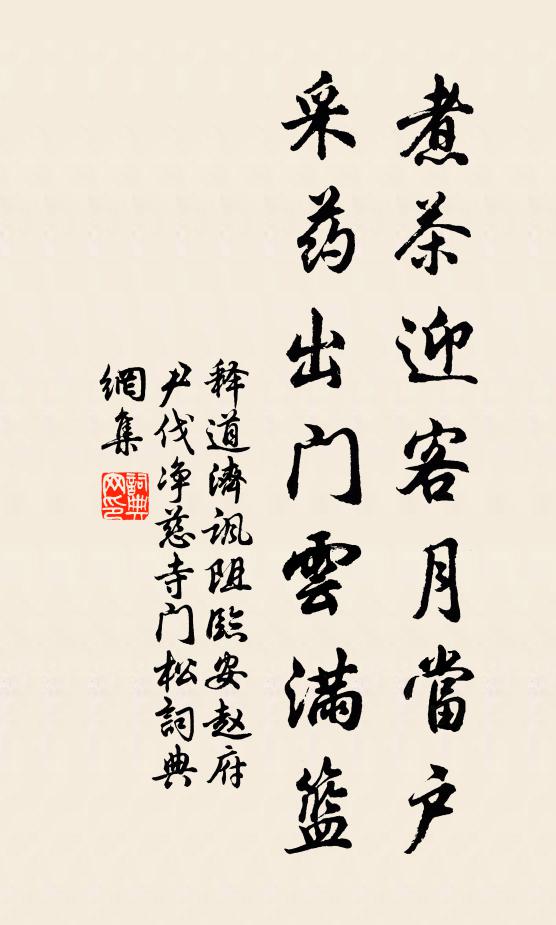 煮茶迎客月當户
采药出门雲满籃
释道濟讽阻臨安赵府
尹伐净慈寺门松詞典
網集
詞典
网印